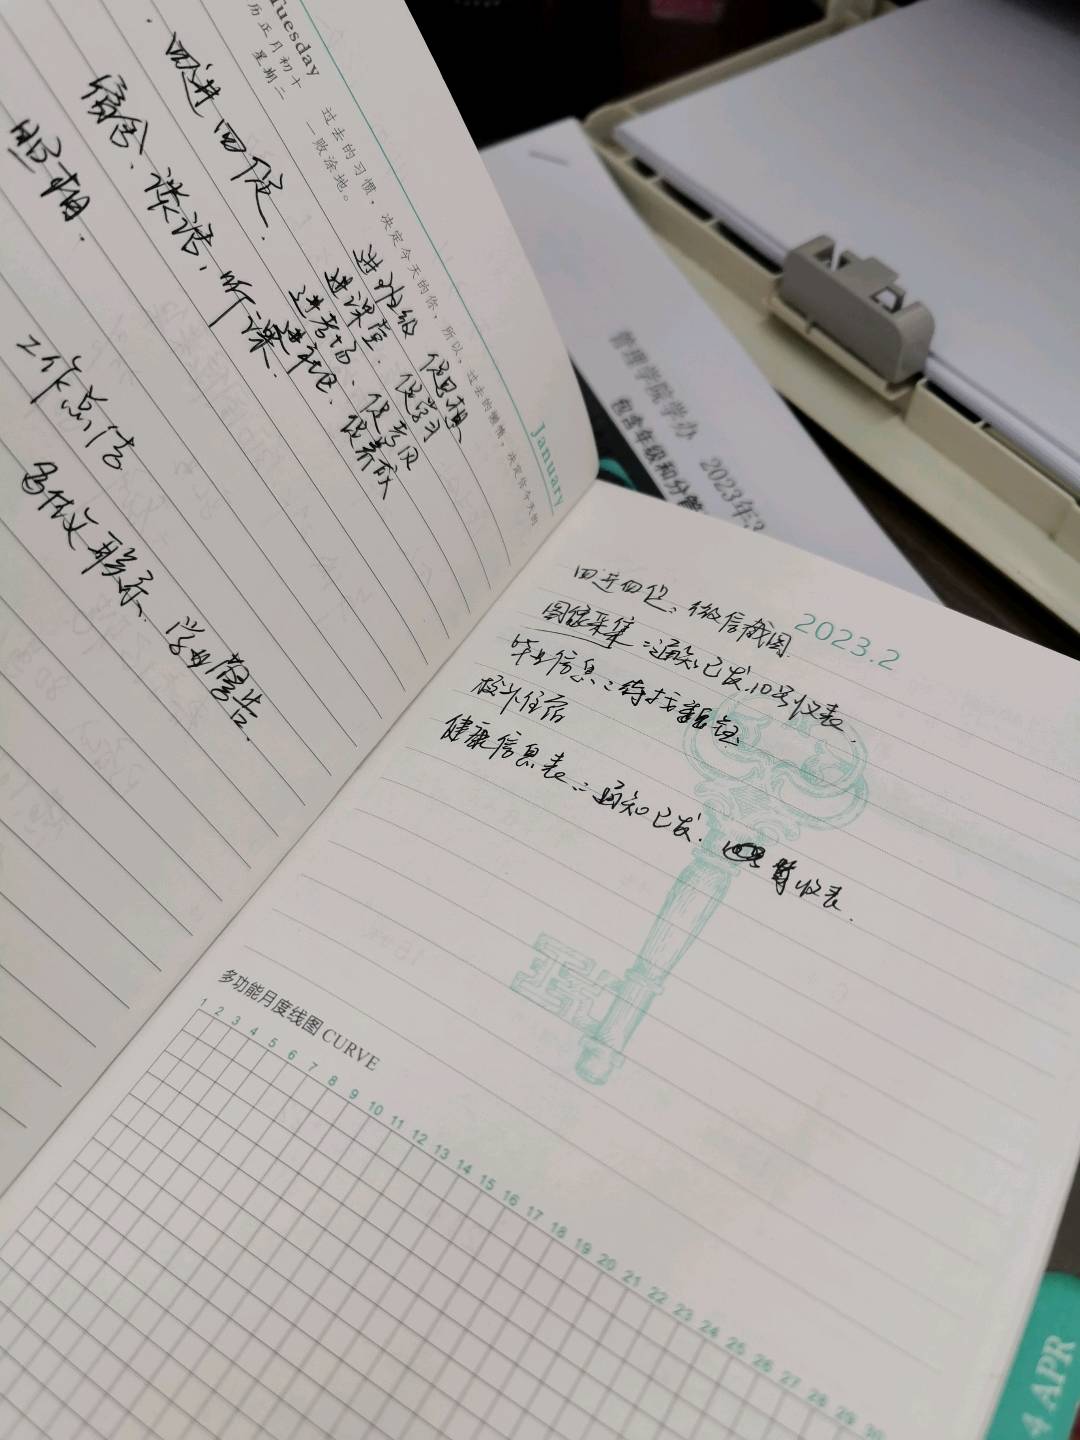 Tuesday
历正月初十
星期二
过去的习惯，决定今天的你，所以，过去的懒惰，决定你今天的
一败涂地。
January
四进四促.
宿舍、谈话，听课.
照相.
进班级 促思想
进课堂. 促学习
进考场、促考风
进社区、促养成
工作总结
多位文联系. 学业警告.
管理学院学办 2023年
包含年级和分管
2023.2
四进四促：微信截图.
图像采集：通知已发.10号收表.
毕业信息：待找
校外住宿
健康信息表：通知已发. 暂收表.
多功能月度线图 CURVE
1 2 3 4 5 6 7 8 9 10 11 12 13 14 15 16 17 18 19 20 21 22 23 24 25 26 27 28 29 30
4 APR